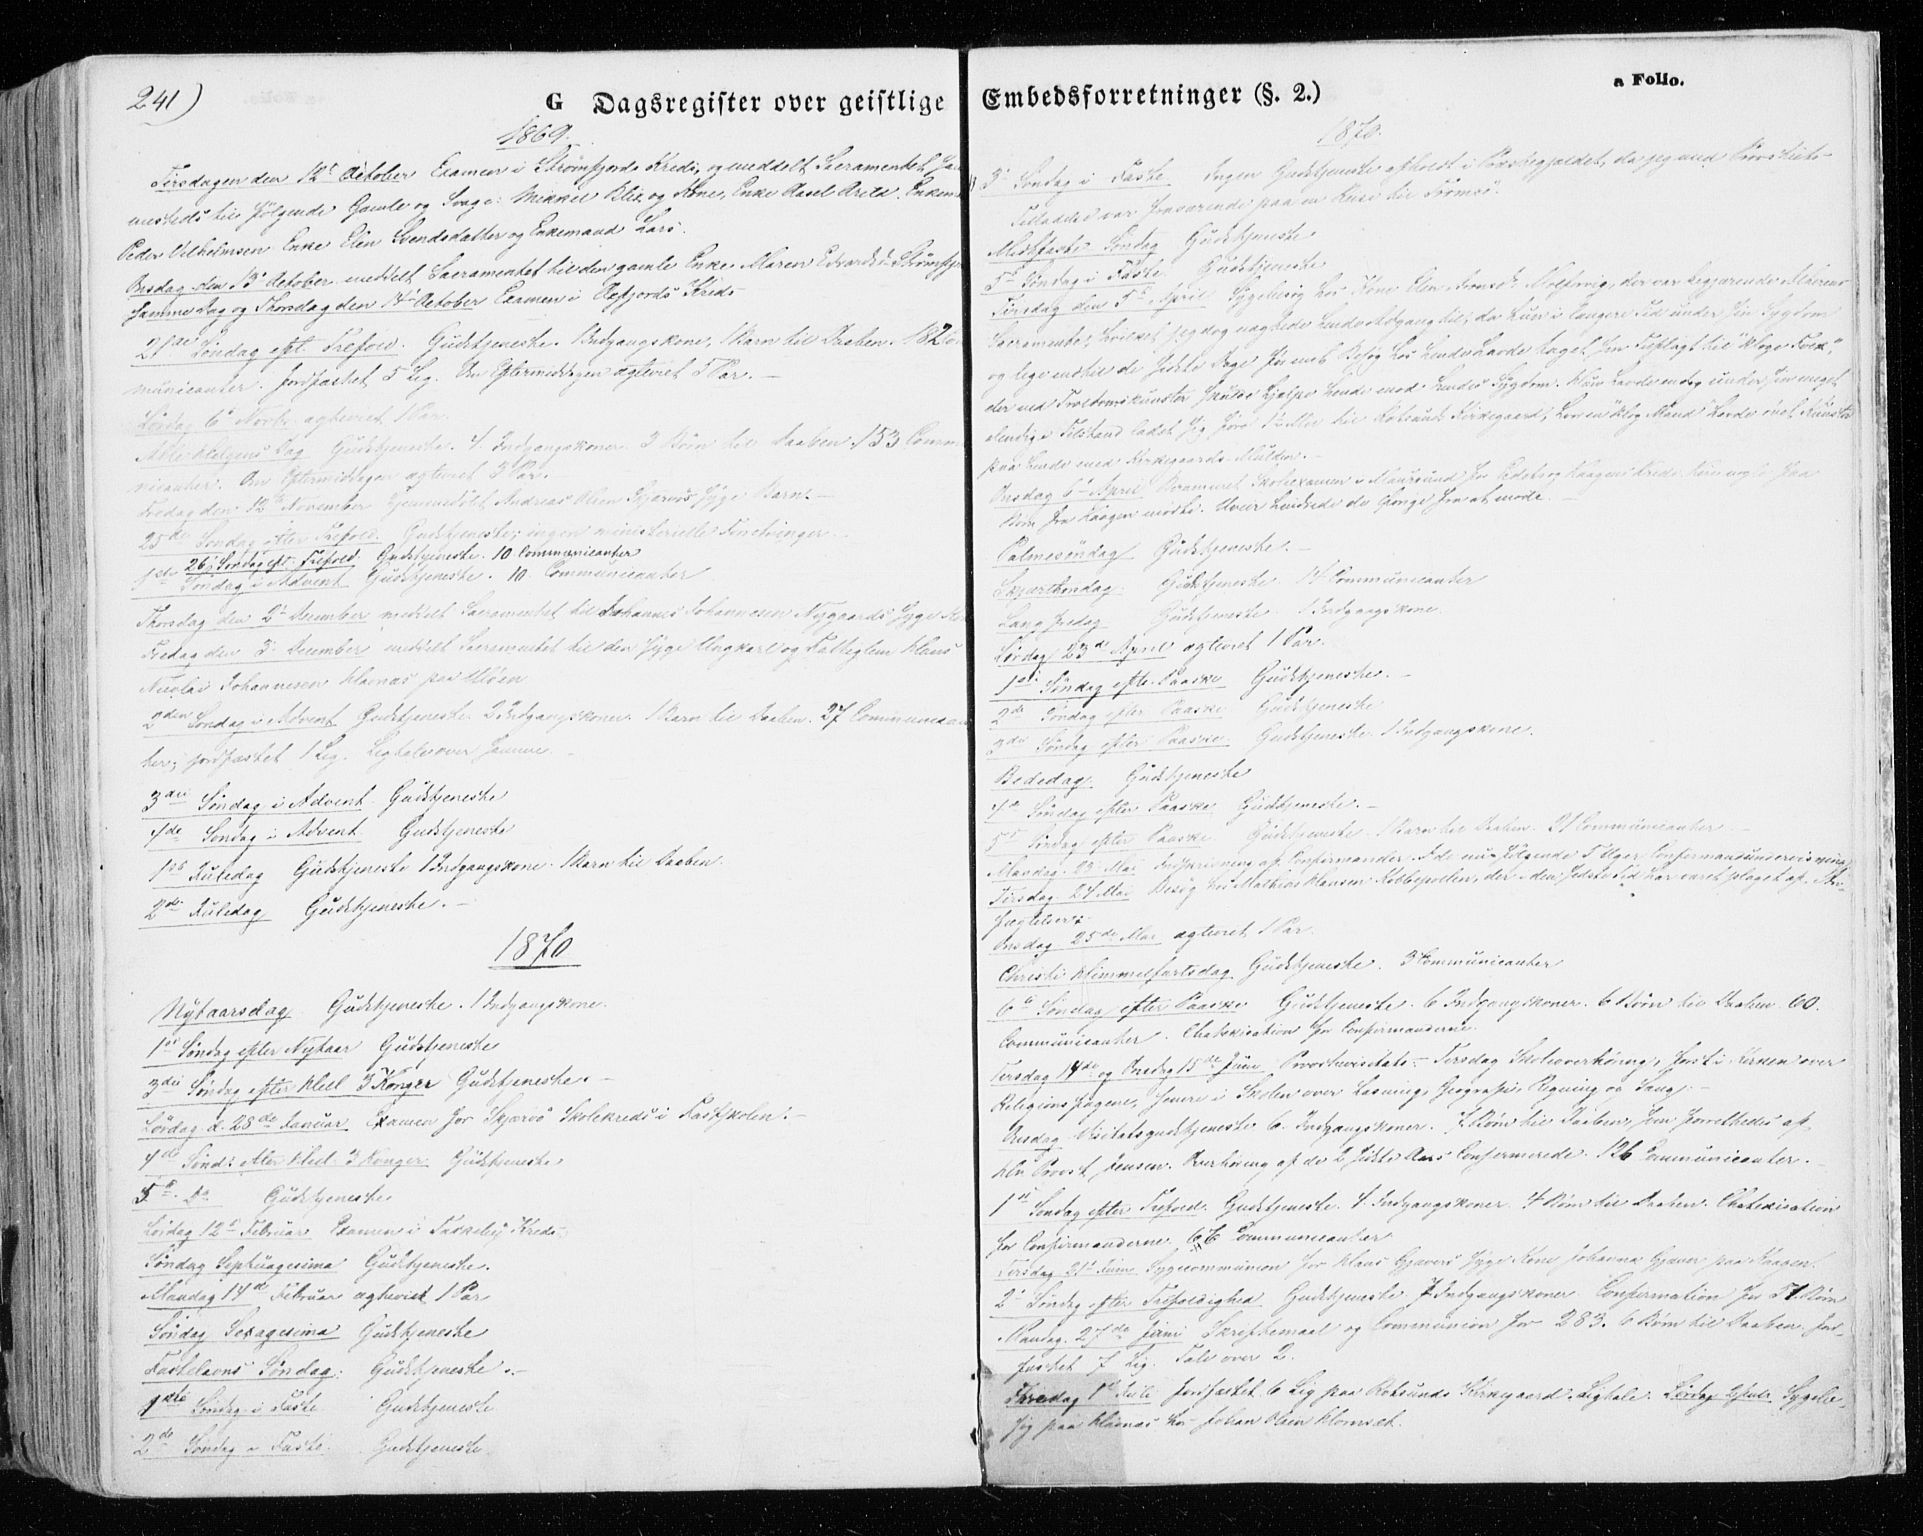 241)
G Dagsregister over geistlige
1869.
Tirsdagen den 12te October Examen i Strømfjords Kreds, og meddelt Sacramentet
til følgende Gamle og Svage: Mikkel Blix og Kone, Enke
Peder Vilhelmsen Enke Elen Svendsdatter og Enkemand Lars.
Onsdag den 13de October meddelt Sacramentet til den gamle Enke Maren
samme Dag og Thorsdag den 14de October Examen i Kreds
21de Søndag eft. Trefold. Gudstjeneste. 1 Indgangskone, 1 Barn til Daaben. 182
municanter. jordfæstet 5 Lig. Om Eftermiddagen egteviet 5 Par. —
Lørdag 6te Novbr. egteviet 1 Par.
Allehelgens Dag Gudstjeneste. 4 Indgangskoner. 3 Børn til Daaben. 153
nicanter. Om Eftermiddagen egteviet 3 Par.
Fredag den 12te November hjemmedøbt Andreas Olsen syge Barn. —
25de Søndag efter Trefold. Gudstjeneste; ingen ministerielle Forretninger. —
26de Søndag eft. Trefold. Gudstjeneste. 10 Communicanter
1ste Søndag i Advent Gudstjeneste. 10 Communicanter
Thorsdag den 2de December meddelt Sacramentet til Johannes Johannesen Nygaards syge
Fredag den 3. December meddelt Sacramentet til den syge Ungkarl og Fattiglem Klaus
Nicolai Johannesen Havnæs paa
2den Søndag i Advent Gudstjeneste. 2 Indgangskoner. 1 Barn til Daaben. 27
ter; jordfæstet 1 Lig. Ligtale over samme. —
3die Søndag i Advent Gudstjeneste
4de Søndag i Advent Gudstjeneste
1ste Juledag Gudstjeneste 1 Indgangskone. 1 Barn til Daaben.
2de Juledag Gudstjeneste. —
1870
Nytaarsdag Gudstjeneste. 1 Indgangskone.
1ste Søndag efter Nytaar Gudstjeneste
3die Søndag efter Hel. 3 Konger Gudstjeneste. —
Lørdag d. 28de Januar Examen for Skjærvø Skolekreds i Fastskolen. —
4de Sønd: efter Hel. 3 Konger. Gudstjeneste
5te Do Gudstjeneste
Lørdag 12te Februar Examen i Kreds.
Søndag Septuagesima Gudstjeneste.
Mandag 14de Februar egteviet 1 Par
Søndag Sexagesima Gudstjeneste
Fastelavns Søndag. Gudstjeneste. —
1ste Søndag i Faste Gudstjeneste
2de Søndag i Faste. Gudstjeneste.
Embedsforretninger (§. 2.)
a Folio.
1870.
3die Søndag i Faste Ingen Gudstjeneste afholdt i Præstegjeldet, da jeg med Provstiets
Tilladelse var fraværende paa en Reise til Tromsø.
Midfaste Søndag Gudstjeneste
5te Søndag i Faste. Gudstjeneste
Tirsdag den 5te April Sygebesøg hos Kone Elen der var begjærende Alterens
Sacramente, hvilket jeg dog nægtede hende Adgang til, da hun i længere Tid under sin Sygdom
og lige indtil de sidste Dage før mit Besøg hos hende havde taget sin Tilflugt til "kloge Folk",
der ved Troldomskunster skulde hjælpe hende mod hendes Sygdom. Hun havde endog under sin meget
elendige Tilstand ladet sig føre 1/2 Mil til Rotsunds Kirkegaard, hvor en "klog Mand" havde øvet Kunster
paa hende med Kirkegaards-Mulden. —
Onsdag 6te April Examen i Maursund for og Kaagen Kreds. Kun nogle faa
Børn fra Kaagen mødte. Uveir hindrede de Øvrige fra at møde. —
Palmesøndag Gudstjeneste. —
Skjærthorsdag. Gudstjeneste 14 Communicanter
Langfredag Gudstjeneste. 1 Indgangskone.
Lørdag 23de April egteviet 1 Par.
1ste Søndag efter Paaske Gudstjeneste. —
2de Søndag efter Paaske Gudstjeneste
3die Søndag efter Paaske. Gudstjeneste. 1 Indgangskone.
Bededag. Gudstjeneste
4de Søndag efter Paaske Gudstjeneste. —
5te Søndag efter Paaske. Gudstjeneste. 1 Barn til Daaben. 21 Communicanter. —
Mandag 23de Mai Indskrivning af Confirmander. I de nu følgende 5 Uger Confirmandundervisning
Tirsdag 24 Mai Besøg hos Mathias Hansen Kobbepollen, der i den sidste Tid har været plaget af An-
fægtelser.
Onsdag 25de Mai egteviet 1 Par.
Christi Himmelfartsdag Gudstjeneste. 3 Communicanter
6te Søndag efter Paaske Gudstjeneste. 6 Indgangskoner. 6 Børn til Daaben. 60.
Communicanter. Chatekisation for Confirmanderne.
Tirsdag 14de og Onsdag 15de Juni Provstevisitats — Tirsdag Skoleoverhøring, først i Kirken over
Religionsfagene, senere i Skolen over Læsning, Geografi, Regning og Sang. —
Onsdag Visitatsgudstjeneste 6 Indgangskoner. 7 Børn til Daaben, som forrettedes af
Hr. Provst Jensen. Overhøring af de 2 sidste Aars Confirmerede. 126 Communicanter. —
1ste Søndag efter Trefold. Gudstjeneste. 4 Indgangskoner. 4 Børn til Daaben. Chatekisation
for Confirmanderne. 66 Communicanter
Tirsdag 21de Juni Sygecommunion for Klaus Gjævers syge Kone Johanna Gjæver paa Kaagen.
2de Søndag efter Trefoldighed Gudstjeneste 7 Indgangskoner. Confirmation for 71 Børn
Mandag 27de Juni Skriftemaal og Communion for 283. 6 Børn til Daaben. Jord-
fæstet 7 Lig. Tale over 2.
Fredag 1ste Juli Jordfæstet 6 Lig paa Rotsunds Kirkegaard. Ligtale. Lørdag 2 Juli Sygebe-
søg paa Havnæs hos Johan Olsen